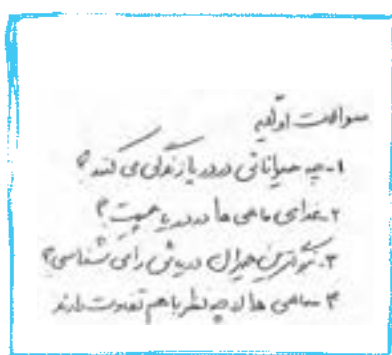 سوالات اولیه
۱- چه حیواناتی در دریا زندگی می کنند؟
۲. غذای ماهی ها در دریا چیست؟
۳. بزرگترین حیوان دریایی را می شناسی؟
۴- ماهی ها از چه نظر با هم تفاوت دارند